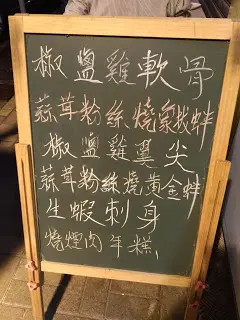 椒鹽雞軟骨
蒜茸粉絲燒象拔蚌
椒鹽雞翼尖
蒜茸粉絲燒黃金蚌
生蝦刺身
燒煙肉年糕